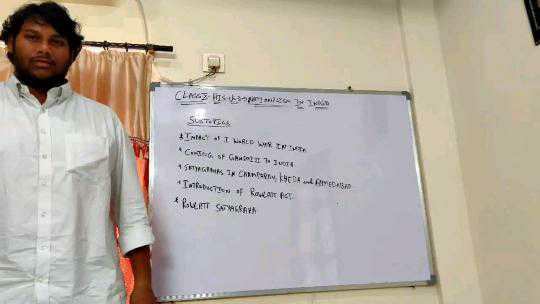 CLASS X-HIS-L-2-NATIONALISM IN INDIA
SUBTOPICS
* IMPACT OF I WORLD WAR IN INDIA
* COMING OF GANDHIJI TO INDIA
* SATYAGRAHAS IN CHAMPARAN, KHEDA and AHMEDABAD
* INTRODUCTION OF ROWLATT ACT
* ROWLATT SATYAGRAHA